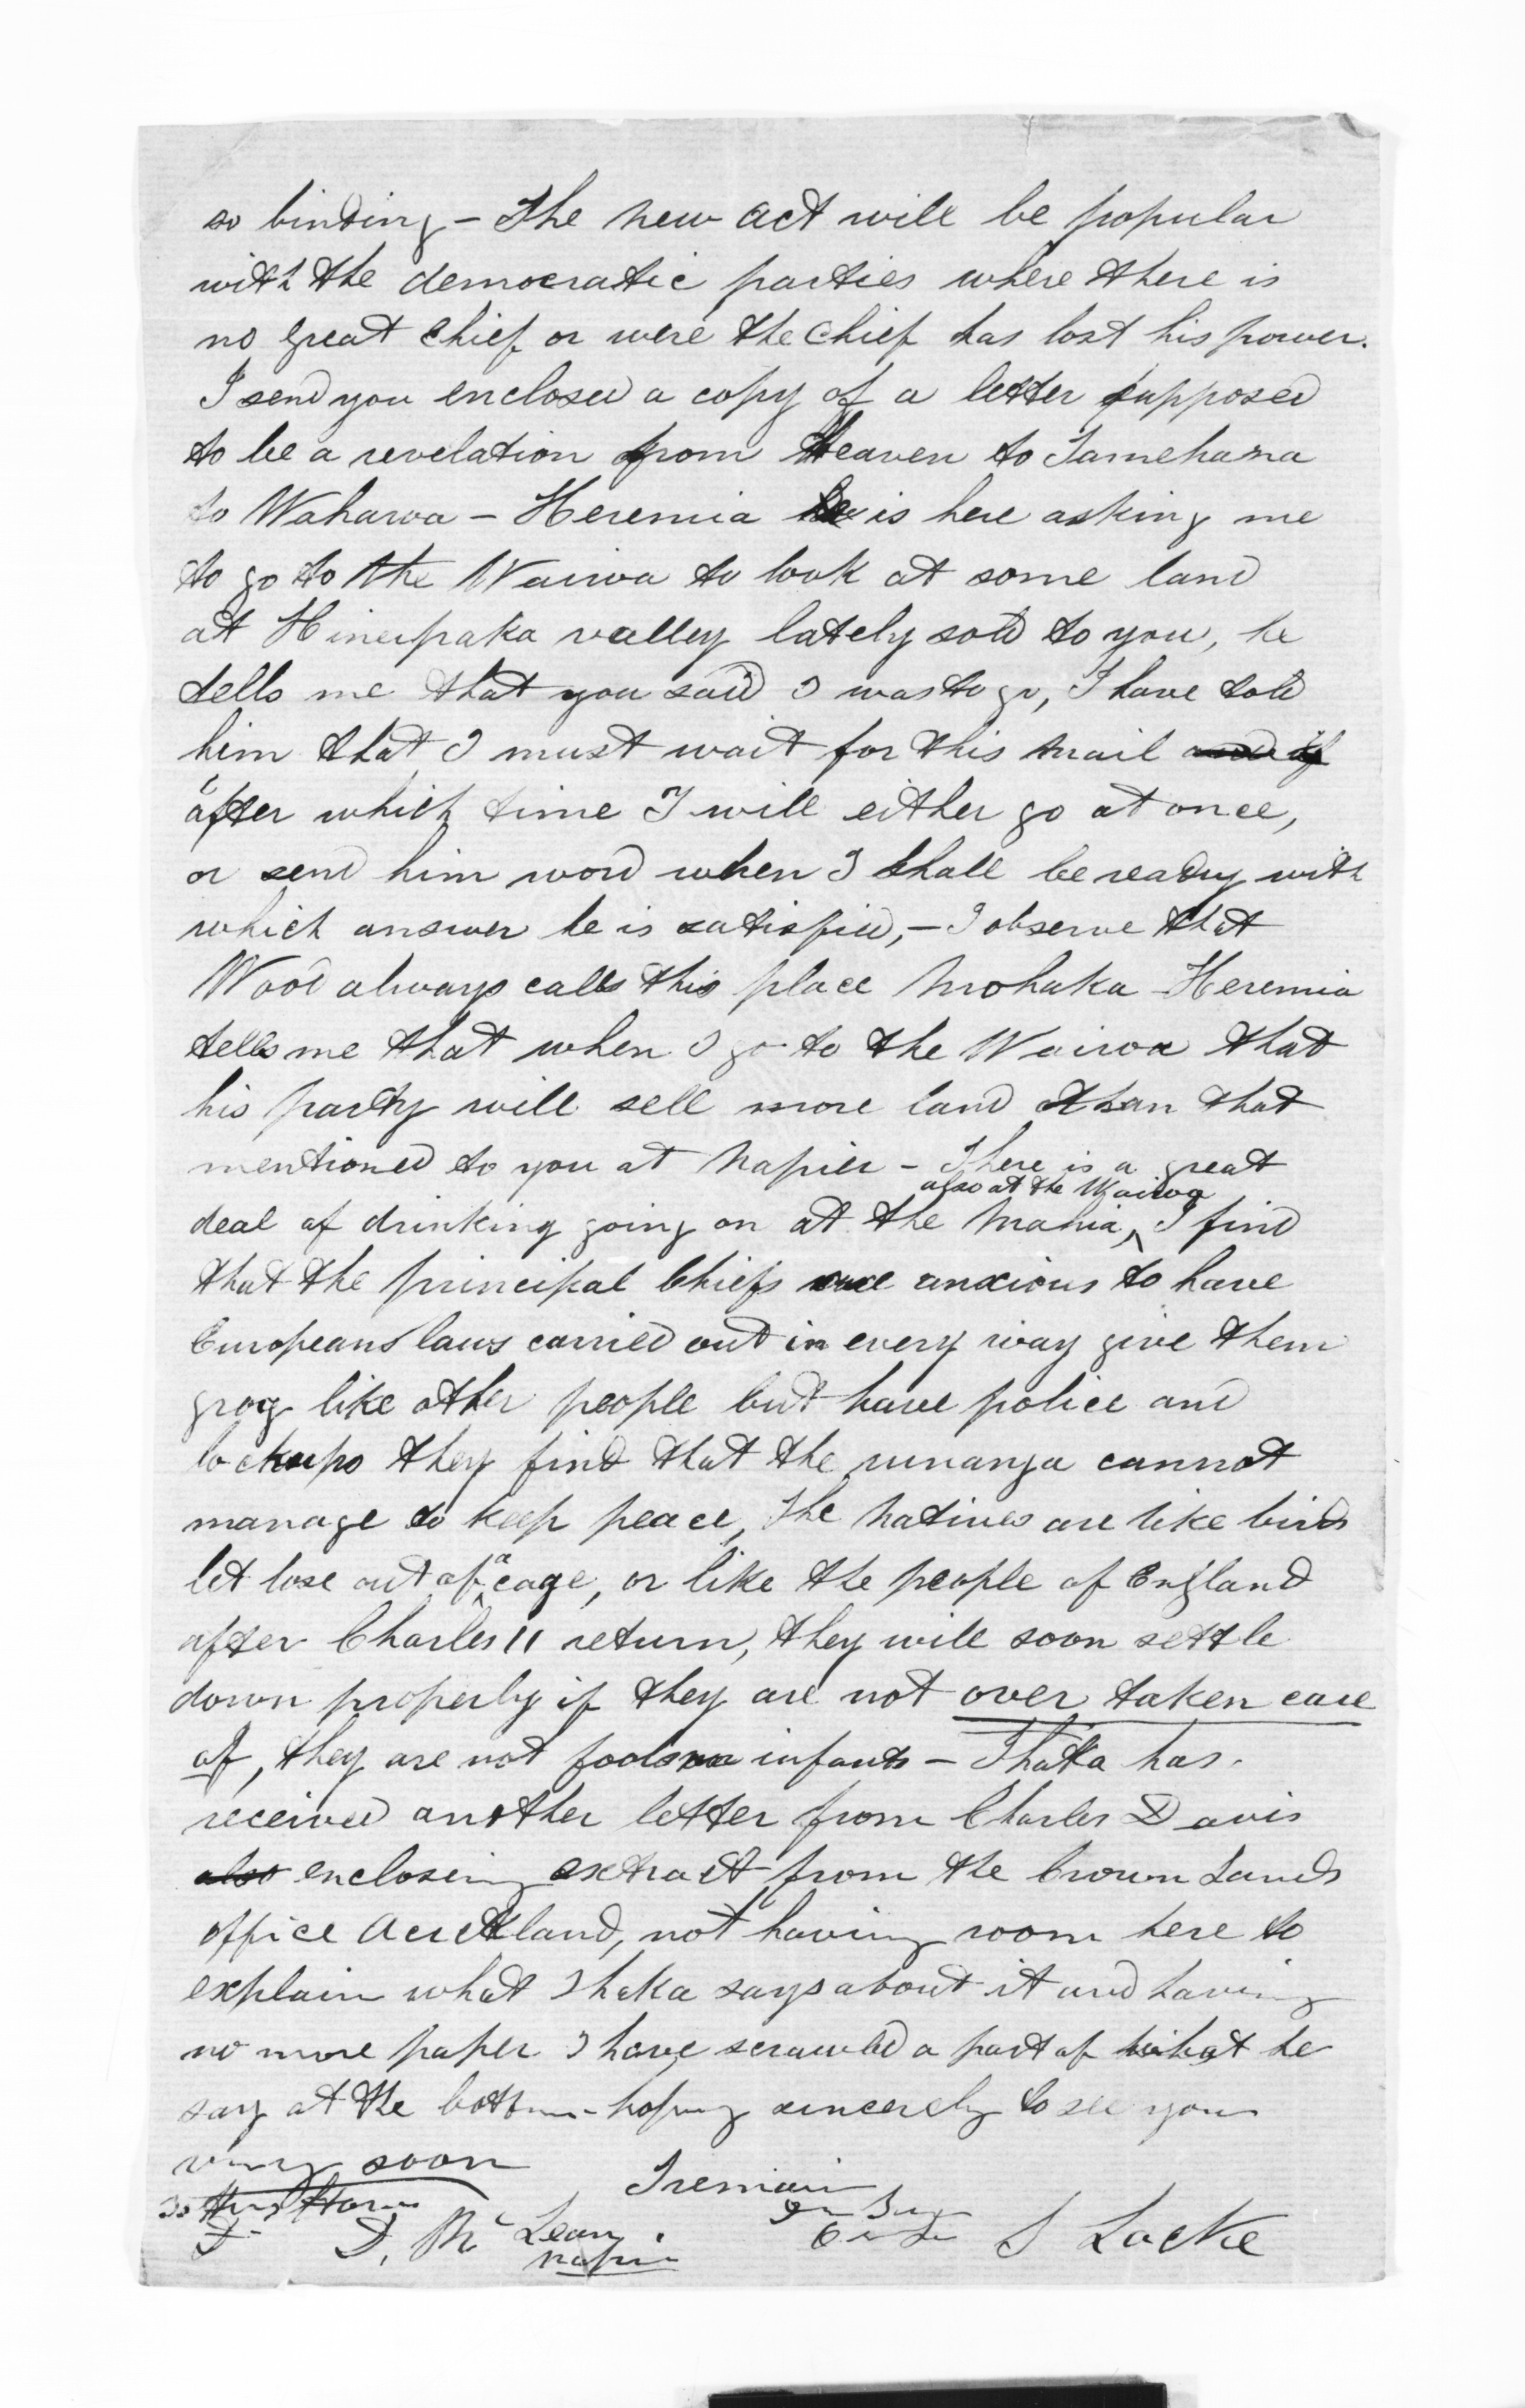 so binding - The New Act will be popular
with the democratic parties where there is
no great Chief or were the Chief has lost his power.
I send you enclosed a copy of a letter supposed
to be a revelation from Heaven to Tamehana
to Waharoa - Heremia is here asking me
to go to the Wairoa to look at some land
at Hineipaka valley lately sold to you, he
tells me that you said I was to go, I have told
him that I must wait for this Mail and if
after which time I will either go at once,
or send him word when I shall be ready with
which answer he is satisfied, - I observe that
Wood always calls this place Mohaka - Heremia
tells me that when I go to the Wairoa that
his party will sell more land than that
mentioned to you at Napier - There is a great
also at the Wairoa
deal of drinking going on at the Mahia, I find
that the principal Chiefs are anxious to have
Europeans laws carried out in every way give them
grog like other people but have police and
lockups they find that the runanga cannot
manage to keep peace, The Natives are like birds
let lose out of a cage, or like the people of England
after Charles 11 return, they will soon settle
down properly if they are not over taken care
of, they are not fools or infants - Ihaka has
received another letter from Charles Davis
also enclosing extract from the Crown Lands
office Auckland, not having room here to
explain what Ihaka says about it and having
no more paper I have scrawled a part of what he
say at the bottom - hoping sincerely to see you
very soon
I remain
To His Honor
D. McLean
Napier
S Locke